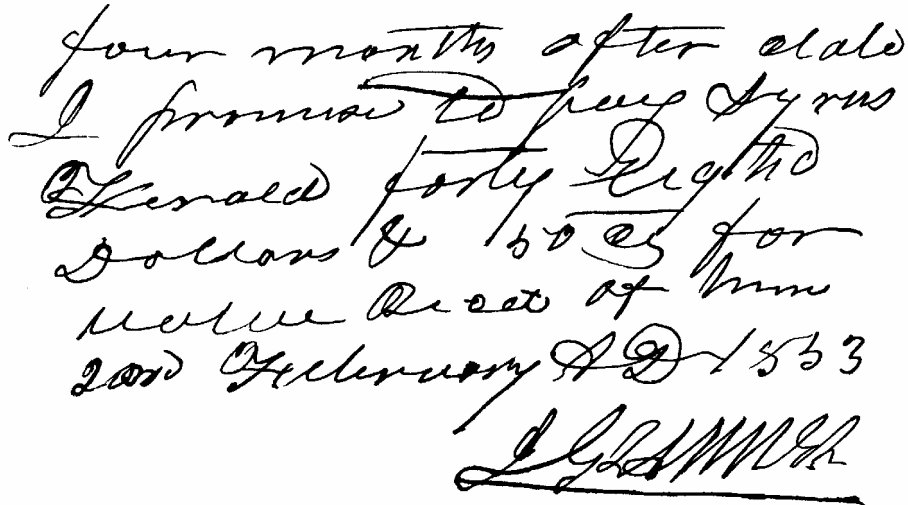 four months after date
I promise to pay Syrus
Herald forty Eight
Dollars & 50 cts for
value Rect of him
22nd February AD 1853